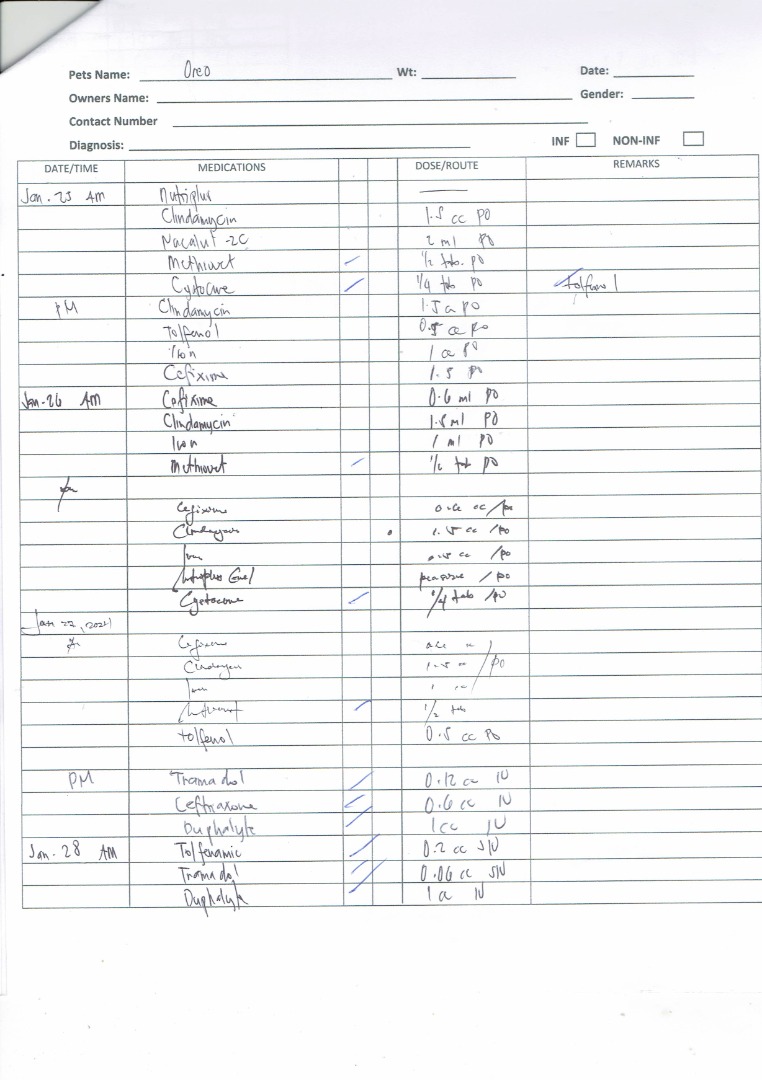 Pets Name: Oreo Wt: Date:
Owners Name: Gender:
Contact Number
Diagnosis: INF NON-INF
DATE/TIME MEDICATIONS DOSE/ROUTE REMARKS
Jan. 25 AM Nutriplus
Clindamycin 1.5 cc PO
2 ml PO
Methiovet 1/2 tab. PO
Cystocure 1/4 tab PO tolfenol
PM Clindamycin 1.5 cc PO
Tolfenol 0.5 cc PO
Iron 1 cc PO
Cefixime 1.5 PO
Jan. 26 AM Cefixime 0.6 ml PO
Clindamycin 1.5 ml PO
Iron 1 ml PO
Methiovet 1/2 tab PO
Cefixime cc /po
1.5 cc /po
Iron cc /po
Nutriplus Gel /po
Cystocure 1/4 tab /po
Cefixime
/po
Iron 1
1/2 tab
tolfenol 0.5 cc PO
PM Tramadol 0.12 cc IV
Ceftriaxone 0.6 cc IV
Duphalyte 1cc IV
Jan. 28 AM Tolfenamic 0.2 cc
Tramadol 0.06 cc
Duphalyte 1 cc IV